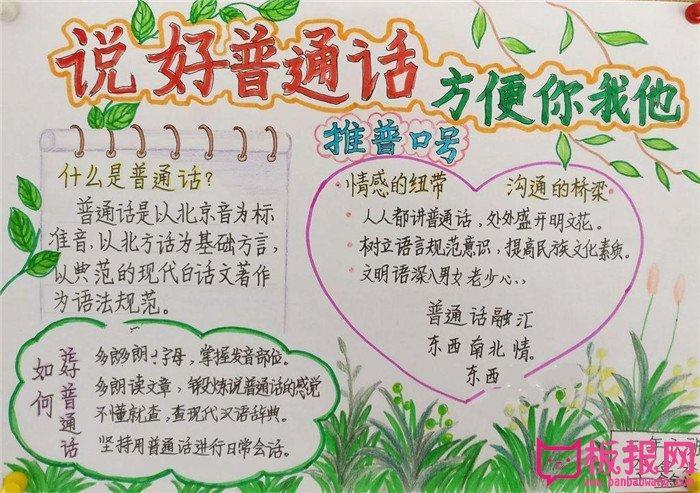 说好普通话
方便你我他
什么是普通话?
普通话是以北京音为标
准音,以北方话为基础方言,
以典范的现代白话文著作
为语法规范。
推普口号
·情感的纽带 沟通的桥梁。
·人人都讲普通话,处处盛开明文花。
·树立语言规范意识,提高民族文化素质。
·文明语深入男女老少心、
普通话融汇
东西南北情。
东西
如何
好普通话
多朗 字母,掌握发音部位。
多朗读文章,锻炼说普通话的感觉
不懂就查,查现代汉语辞典。
坚持用普通话进行日常会话。
年
板报网
www.banbaowang.com